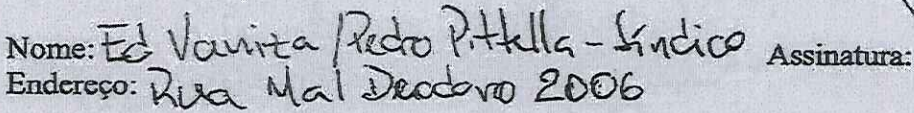 Nome: Ed Vanita / Pedro Pittella - Síndico Assinatura:
Endereço: Rua Mal Deodoro 2006